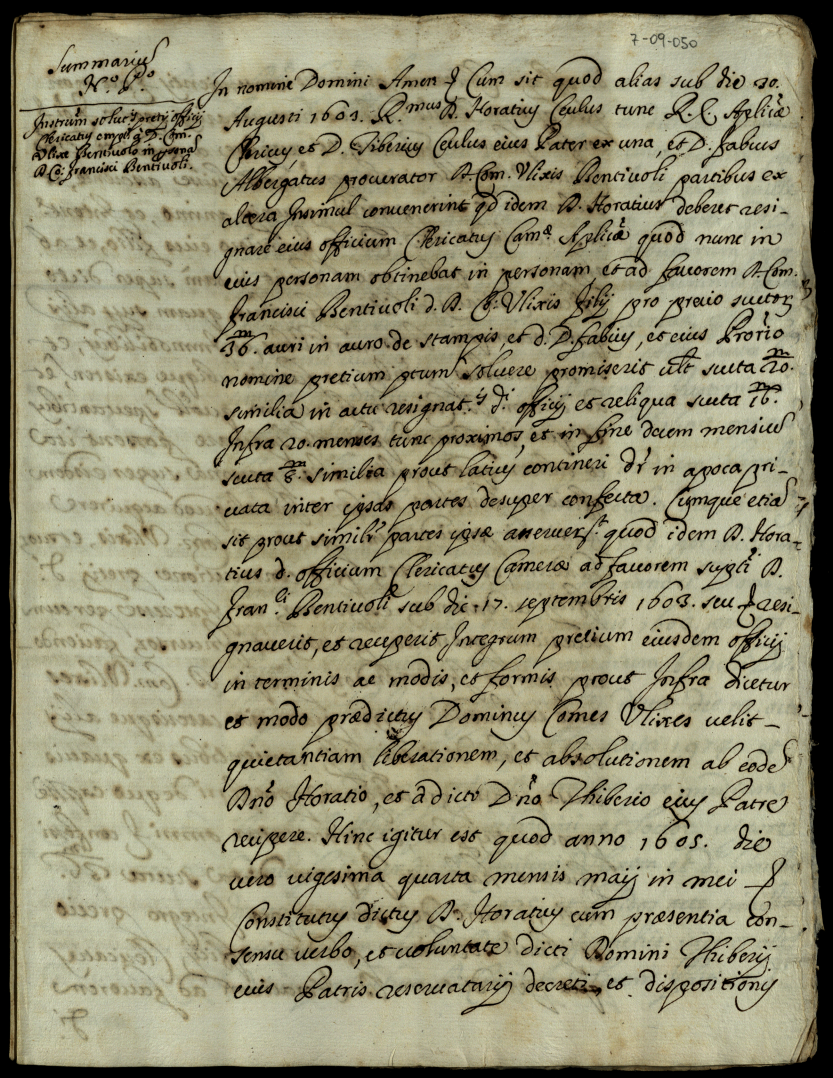 7-09-050
Summarius
N.o P.o
Instrum solut.s pretij officij
Clericatus empti p D. Com.
Ulixe Bentivolo in psona
D. Co: Francisci Bentivoli.
In nomine Domini Amen Cum sit quod alias sub die 20.
Augusti 1603. R.mus D. Horatius Ceulus tunc R. C. Aplicæ
Clericus, et D. Tiberius Ceulus eius Pater ex una, et D. Fabius
Albergatus procurator D. Com. Ulixis Bentivoli partibus ex
altera Insimul convenerint qd idem D. Horatius deberet resi-
gnare eius officium Clericatus Cam.æ Aplicæ quod nunc in
eius personam obtinebat in personam, et ad favorem D. Com.
Francisci Bentivoli d. D. Co: Ulixis filij pro precio scutor
36.m auri in auro de stampis, et d. D. Fabius, et eius Prorio
nomine pretium ptum solvere promiserit ult scuta 20.m
similia in actu resignat.s di officij et reliqua scuta 16.m
Infra 20. menses tunc proximos, et in fine decem mensiu
scuta 8.m similia prout latius contineri dr in apoca pri-
vata inter ipsas partes desuper confecta. Cumque etia
sit prout simili.r partes ipsæ asseruer.t quod idem D. Hora-
tius d. officium Clericatus Cameræ ad favorem supti D.
Fran.ci Bentivoli sub die 17. septembris 1603. seu resi-
gnaverit, et receperit Integrum pretium eiusdem officij
in terminis ac modis, et formis prout Infra dicetur
et modo prædictus Dominus Comes Ulixes velit
quietantiam liberationem, et absolutionem ab eode
Dno Horatio, et a dicto Dno Thiberio eius Patre
recipere. Hinc igitur est quod anno 1605. die
vero vigesima quarta mensis maij in mei
Constitutus dictus D. Horatius cum præsentia con-
sensu verbo, et voluntate dicti Domini Thiberij
eius Patris reservatarij decreti, et dispositionis